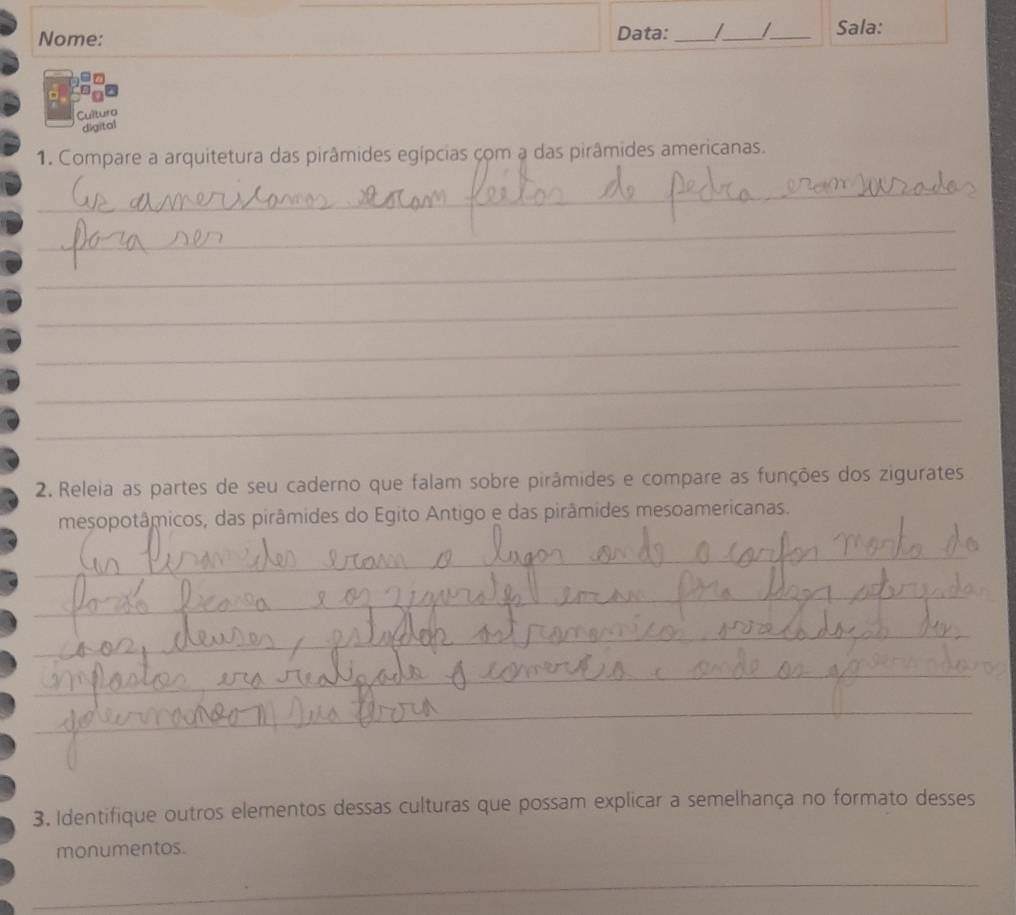 Nome: Data: ____/____/____ Sala:
Cultura
digital
1. Compare a arquitetura das pirâmides egípcias com a das pirâmides americanas.
as americanas eram feitas de pedra, eram usadas
para ser
2. Releia as partes de seu caderno que falam sobre pirâmides e compare as funções dos zigurates
mesopotâmicos, das pirâmides do Egito Antigo e das pirâmides mesoamericanas.
as Piramides eram o lugar onde o corpo morto do
ficava e os zigurates eram para
aos deuses, arrecadação dos
impostos era realizado o comercio e onde os
sua
3. Identifique outros elementos dessas culturas que possam explicar a semelhança no formato desses
monumentos.